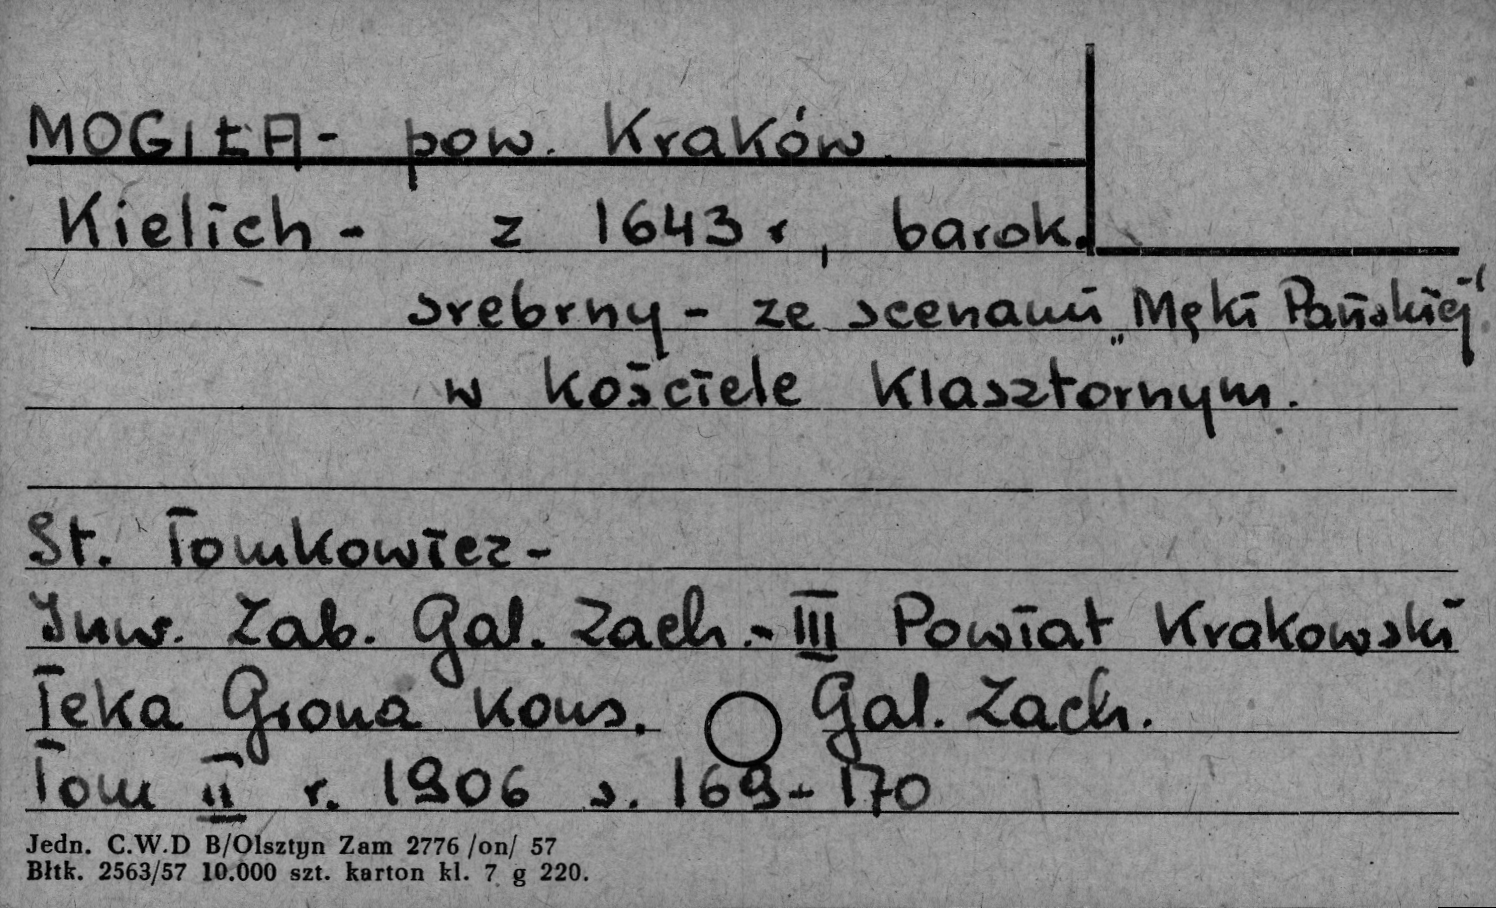 MOGIŁA - pow. Kraków.
Kielich - z 1643 r, barok.
srebrny - ze scenami „Męki Pańskiej“
w kościele Klasztornym.
St. Tomkowicz -
Inw. Zab. Gal. Zach. - III Powiat Krakowski
Teka Grona Kons. Gal. Zach.
Tom II r. 1906 s. 169-170
Jedn. C.W.D B/Olsztyn Zam 2776 /on/ 57
Błtk. 2563/57 10.000 szt. karton kl. 7 g 220.